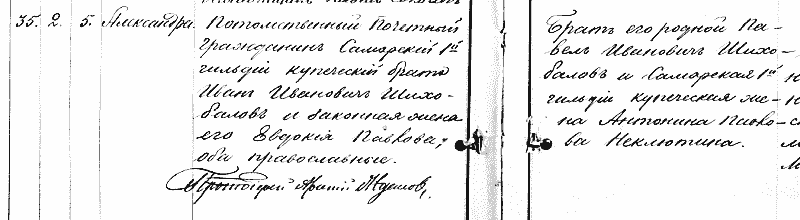 35. 2. 5. Александра. Потомственный Почетный
гражданинъ Самарскій 1й
гильдіи купеческій братъ
Иванъ Ивановичъ Шихо-
баловъ и законная жена
его Евдокія Павлова;
оба православные.
Протоіерей
Братъ его родной Па-
велъ Ивановичъ Шихо-
баловъ и Самарская 1й
гильдіи купеческая же-
на Антонина Павло-
ва Неклютина.